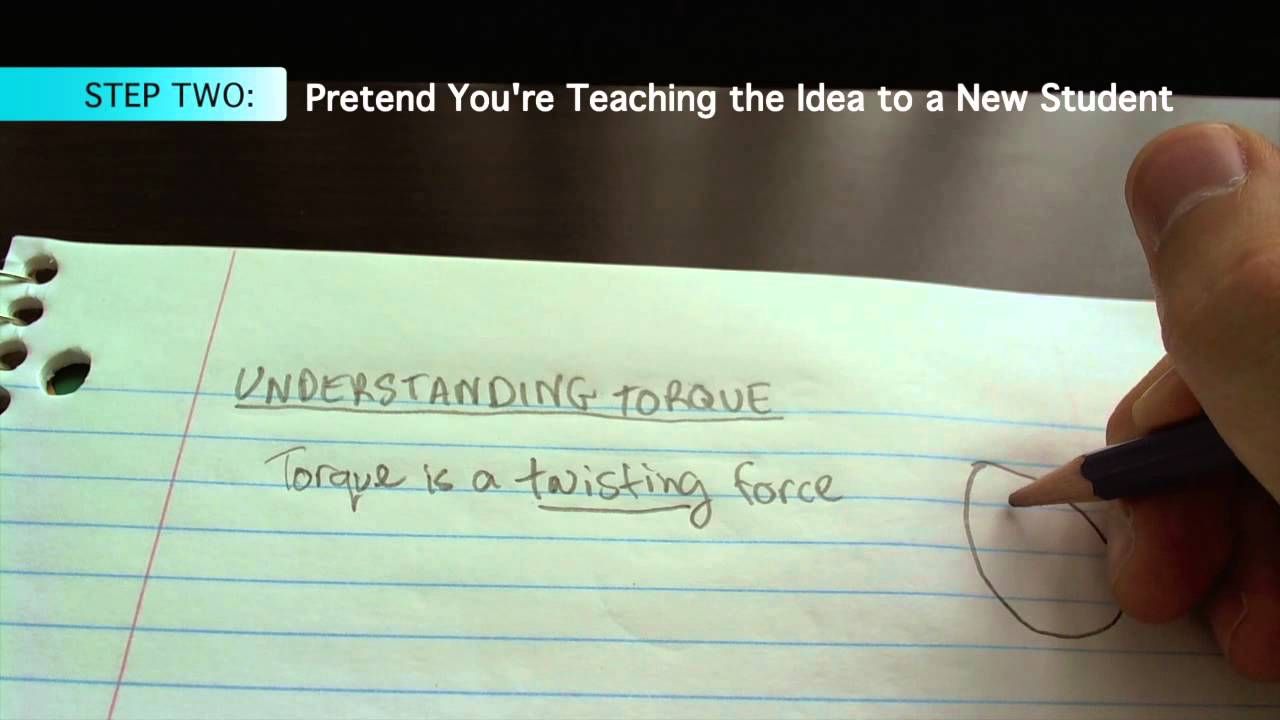 STEP TWO: Pretend You're Teaching the Idea to a New Student
UNDERSTANDING TORQUE
Torque is a twisting force